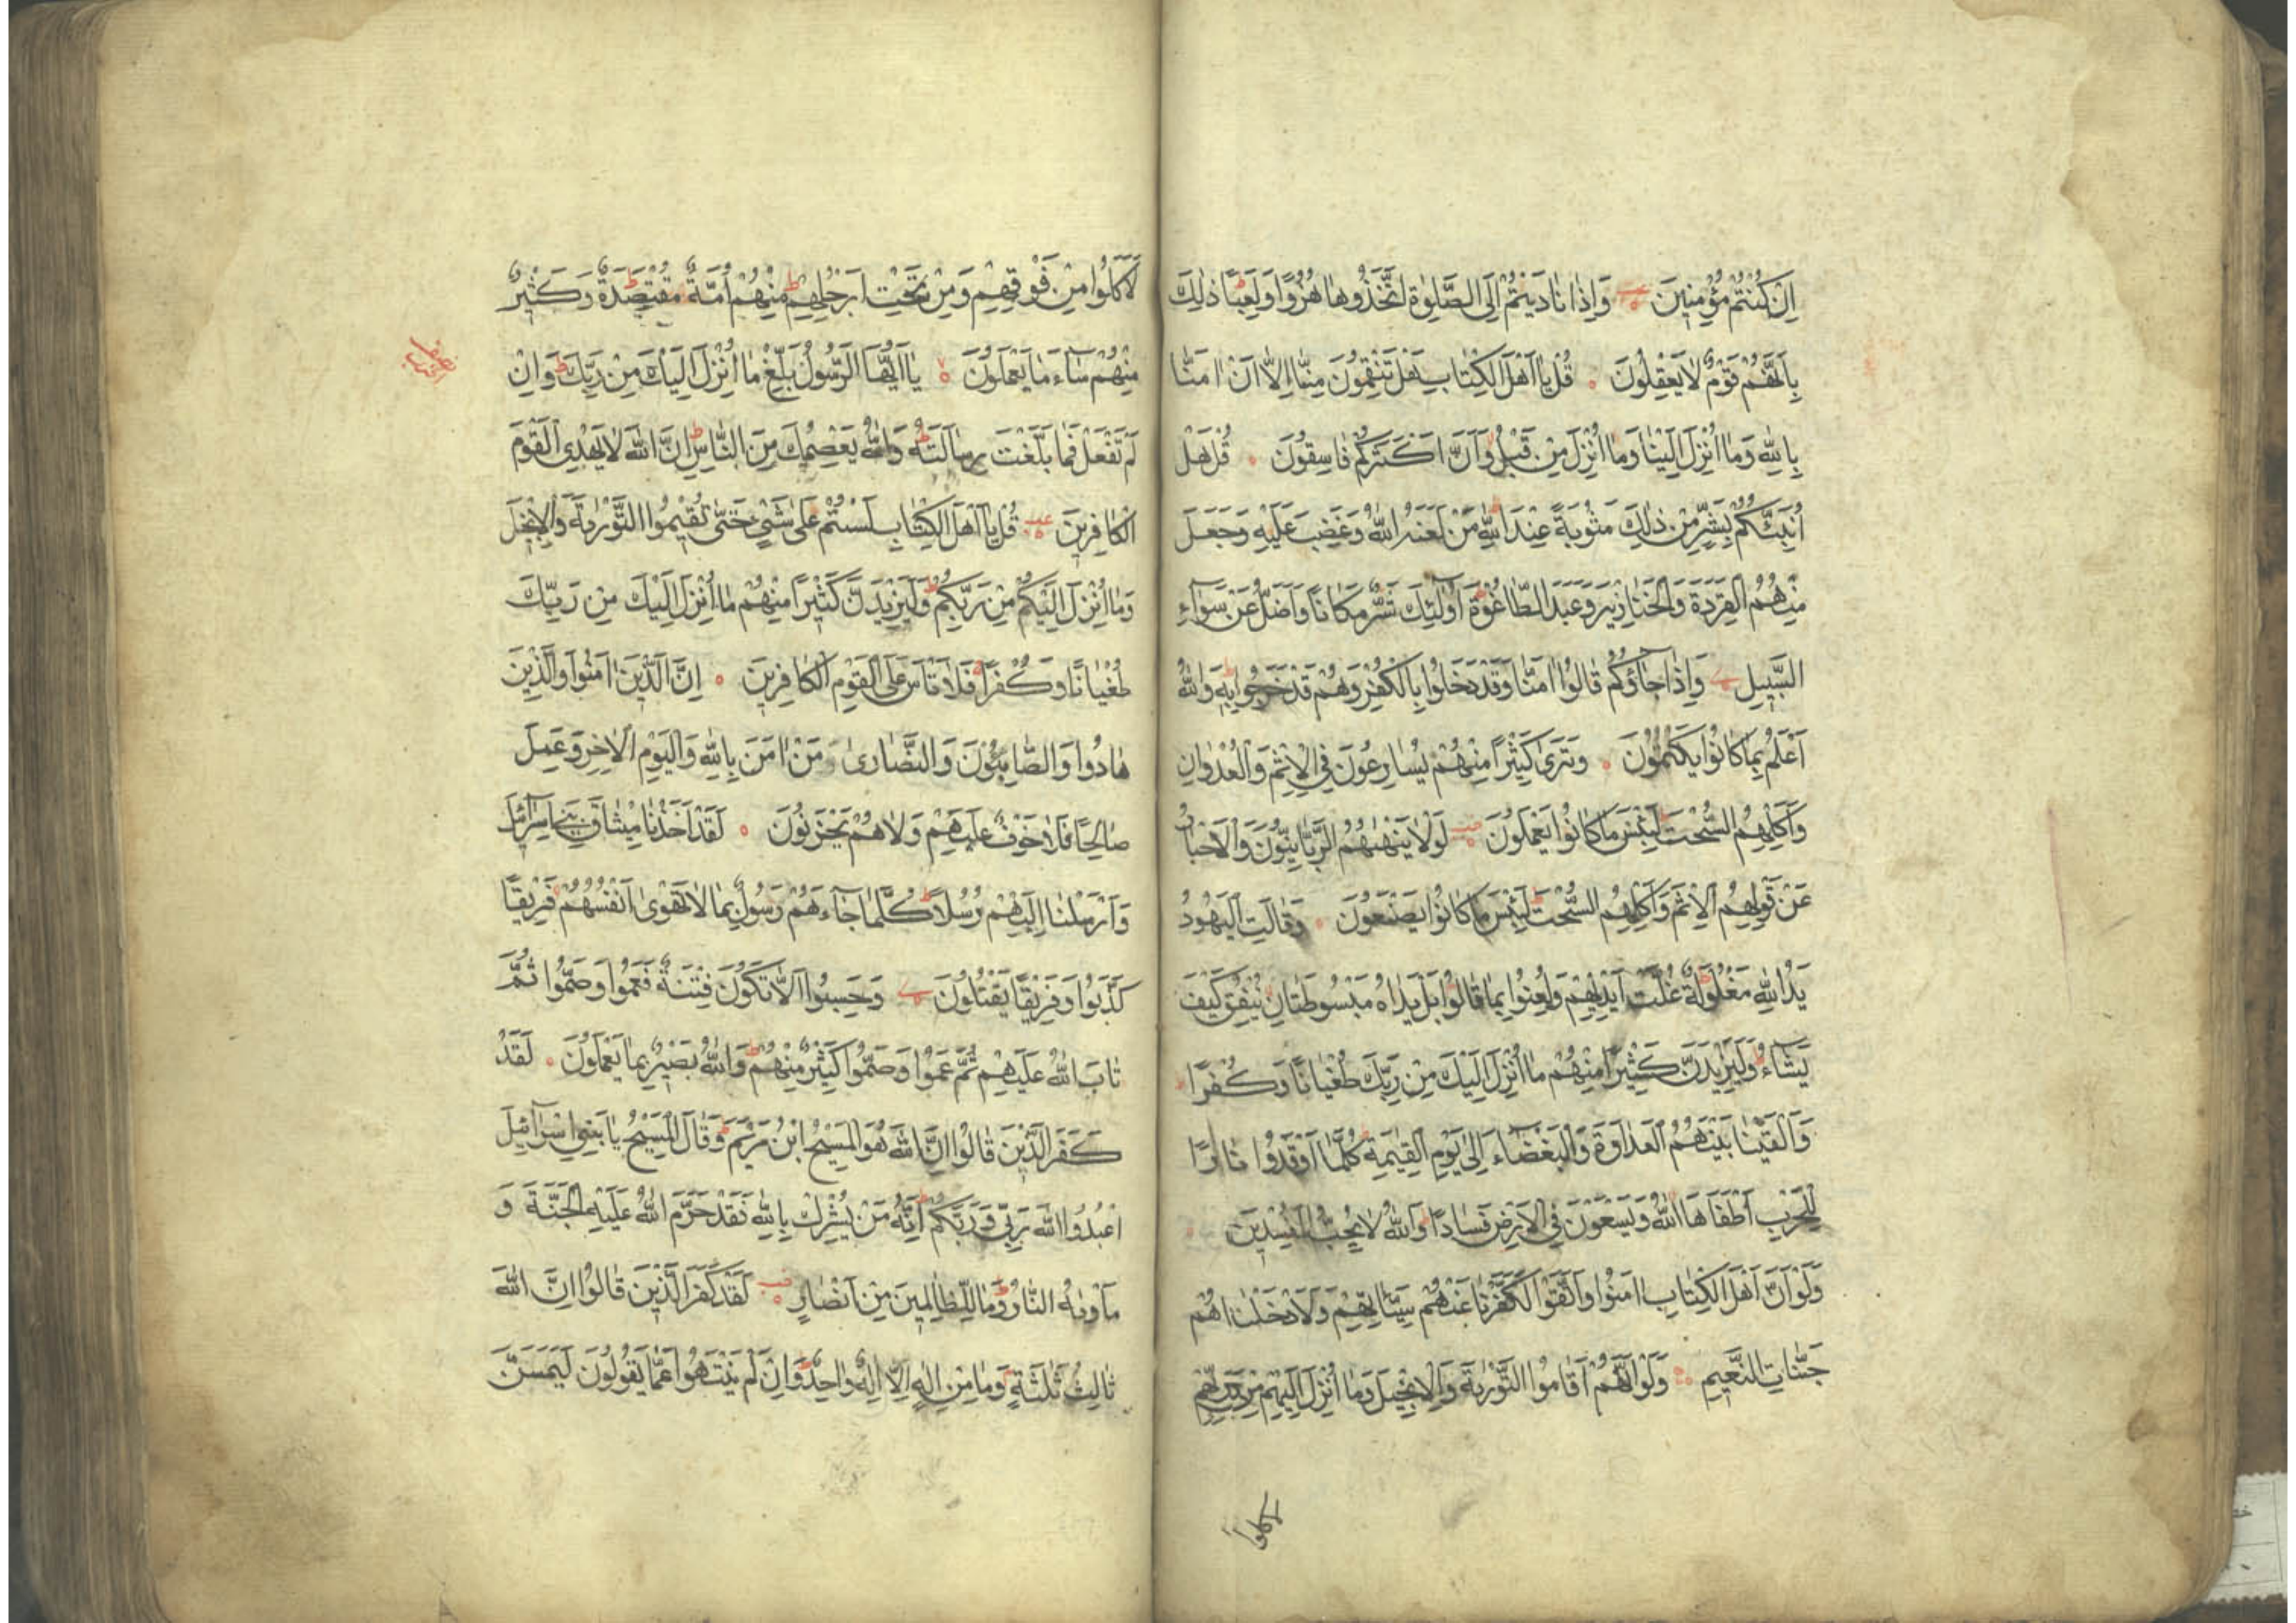 اِنْ كُنْتُمْ مُؤْمِنِينَ وَاِذَا نَادَيْتُمْ اِلَى الصَّلٰوةِ اتَّخَذُوهَا هُزُوًا وَلَعِبًا ذٰلِكَ
بِاَنَّهُمْ قَوْمٌ لَا يَعْقِلُونَ قُلْ يَا اَهْلَ الْكِتَابِ هَلْ تَنْقِمُونَ مِنَّا اِلَّا اَنْ اٰمَنَّا
بِاللّٰهِ وَمَا اُنْزِلَ اِلَيْنَا وَمَا اُنْزِلَ مِنْ قَبْلُ وَاَنَّ اَكْثَرَكُمْ فَاسِقُونَ قُلْ هَلْ
اُنَبِّئُكُمْ بِشَرٍّ مِنْ ذٰلِكَ مَثُوبَةً عِنْدَ اللّٰهِ مَنْ لَعَنَهُ اللّٰهُ وَغَضِبَ عَلَيْهِ وَجَعَلَ
مِنْهُمُ الْقِرَدَةَ وَالْخَنَازِيرَ وَعَبَدَ الطَّاغُوتَ اُولٰئِكَ شَرٌّ مَكَانًا وَاَضَلُّ عَنْ سَوَاءِ
السَّبِيلِ وَاِذَا جَاؤُكُمْ قَالُوا اٰمَنَّا وَقَدْ دَخَلُوا بِالْكُفْرِ وَهُمْ قَدْ خَرَجُوا بِهِ وَاللّٰهُ
اَعْلَمُ بِمَا كَانُوا يَكْتُمُونَ وَتَرٰى كَثِيرًا مِنْهُمْ يُسَارِعُونَ فِى الْاِثْمِ وَالْعُدْوَانِ
وَاَكْلِهِمُ السُّحْتَ لَبِئْسَ مَا كَانُوا يَعْمَلُونَ لَوْلَا يَنْهٰيهُمُ الرَّبَّانِيُّونَ وَالْاَحْبَارُ
عَنْ قَوْلِهِمُ الْاِثْمَ وَاَكْلِهِمُ السُّحْتَ لَبِئْسَ مَا كَانُوا يَصْنَعُونَ وَقَالَتِ الْيَهُودُ
يَدُ اللّٰهِ مَغْلُولَةٌ غُلَّتْ اَيْدِيهِمْ وَلُعِنُوا بِمَا قَالُوا بَلْ يَدَاهُ مَبْسُوطَتَانِ يُنْفِقُ كَيْفَ
يَشَاءُ وَلَيَزِيدَنَّ كَثِيرًا مِنْهُمْ مَا اُنْزِلَ اِلَيْكَ مِنْ رَبِّكَ طُغْيَانًا وَكُفْرًا
وَاَلْقَيْنَا بَيْنَهُمُ الْعَدَاوَةَ وَالْبَغْضَاءَ اِلٰى يَوْمِ الْقِيٰمَةِ كُلَّمَا اَوْقَدُوا نَارًا
لِلْحَرْبِ اَطْفَاَهَا اللّٰهُ وَيَسْعَوْنَ فِى الْاَرْضِ فَسَادًا وَاللّٰهُ لَا يُحِبُّ الْمُفْسِدِينَ
وَلَوْ اَنَّ اَهْلَ الْكِتَابِ اٰمَنُوا وَاتَّقَوْا لَكَفَّرْنَا عَنْهُمْ سَيِّئَاتِهِمْ وَلَاَدْخَلْنَاهُمْ
جَنَّاتِ النَّعِيمِ وَلَوْ اَنَّهُمْ اَقَامُوا التَّوْرٰيةَ وَالْاِنْجِيلَ وَمَا اُنْزِلَ اِلَيْهِمْ مِنْ رَبِّهِمْ
لاكلوا
لَاَكَلُوا مِنْ فَوْقِهِمْ وَمِنْ تَحْتِ اَرْجُلِهِمْ مِنْهُمْ اُمَّةٌ مُقْتَصِدَةٌ وَكَثِيرٌ
مِنْهُمْ سَاءَ مَا يَعْمَلُونَ يَا اَيُّهَا الرَّسُولُ بَلِّغْ مَا اُنْزِلَ اِلَيْكَ مِنْ رَبِّكَ وَاِنْ
لَمْ تَفْعَلْ فَمَا بَلَّغْتَ رِسَالَتَهُ وَاللّٰهُ يَعْصِمُكَ مِنَ النَّاسِ اِنَّ اللّٰهَ لَا يَهْدِى الْقَوْمَ
الْكَافِرِينَ قُلْ يَا اَهْلَ الْكِتَابِ لَسْتُمْ عَلٰى شَىْءٍ حَتّٰى تُقِيمُوا التَّوْرٰيةَ وَالْاِنْجِيلَ
وَمَا اُنْزِلَ اِلَيْكُمْ مِنْ رَبِّكُمْ وَلَيَزِيدَنَّ كَثِيرًا مِنْهُمْ مَا اُنْزِلَ اِلَيْكَ مِنْ رَبِّكَ
طُغْيَانًا وَكُفْرًا فَلَا تَاْسَ عَلَى الْقَوْمِ الْكَافِرِينَ اِنَّ الَّذِينَ اٰمَنُوا وَالَّذِينَ
هَادُوا وَالصَّابِئُونَ وَالنَّصَارٰى مَنْ اٰمَنَ بِاللّٰهِ وَالْيَوْمِ الْاٰخِرِ وَعَمِلَ
صَالِحًا فَلَا خَوْفٌ عَلَيْهِمْ وَلَا هُمْ يَحْزَنُونَ لَقَدْ اَخَذْنَا مِيثَاقَ بَنِى اِسْرَائِلَ
وَاَرْسَلْنَا اِلَيْهِمْ رُسُلًا كُلَّمَا جَاءَهُمْ رَسُولٌ بِمَا لَا تَهْوٰى اَنْفُسُهُمْ فَرِيقًا
كَذَّبُوا وَفَرِيقًا يَقْتُلُونَ وَحَسِبُوا اَلَّا تَكُونَ فِتْنَةٌ فَعَمُوا وَصَمُّوا ثُمَّ
تَابَ اللّٰهُ عَلَيْهِمْ ثُمَّ عَمُوا وَصَمُّوا كَثِيرٌ مِنْهُمْ وَاللّٰهُ بَصِيرٌ بِمَا يَعْمَلُونَ لَقَدْ
كَفَرَ الَّذِينَ قَالُوا اِنَّ اللّٰهَ هُوَ الْمَسِيحُ ابْنُ مَرْيَمَ وَقَالَ الْمَسِيحُ يَا بَنِى اِسْرَائِيلَ
اعْبُدُوا اللّٰهَ رَبِّى وَرَبَّكُمْ اِنَّهُ مَنْ يُشْرِكْ بِاللّٰهِ فَقَدْ حَرَّمَ اللّٰهُ عَلَيْهِ الْجَنَّةَ وَ
مَاْوٰيهُ النَّارُ وَمَا لِلظَّالِمِينَ مِنْ اَنْصَارٍ لَقَدْ كَفَرَ الَّذِينَ قَالُوا اِنَّ اللّٰهَ
ثَالِثُ ثَلٰثَةٍ وَمَا مِنْ اِلٰهٍ اِلَّا اِلٰهٌ وَاحِدٌ وَاِنْ لَمْ يَنْتَهُوا عَمَّا يَقُولُونَ لَيَمَسَّنَّ